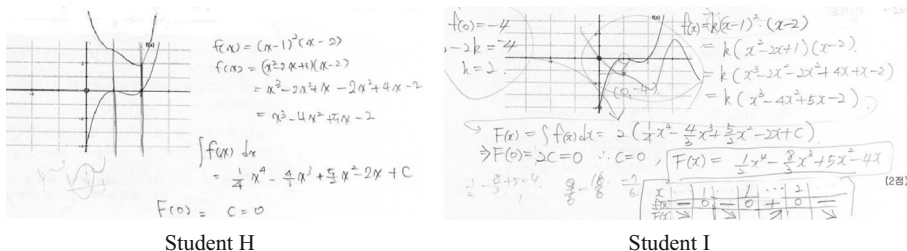 f(x)
f(x) = (x-1)²(x-2)
f(x) = (x²-2x+1)(x-2)
= x³-2x²+x-2x²+4x-2
= x³-4x²+5x-2
∫f(x) dx
= 1/4 x⁴ - 4/3 x³ + 5/2 x² - 2x + C
F(0) = C = 0
Student H
f(0) = -4
-2k = -4
k = 2
f(x)
(0, -4)
f(x) = k(x-1)²·(x-2)
= k(x²-2x+1)(x-2)
= k(x³-2x²-2x²+4x+x-2)
= k(x³-4x²+5x-2)
F(x) = ∫f(x)dx = 2(1/4 x⁴ - 4/3 x³ + 5/2 x² - 2x + C)
⇒ F(0) = 2C = 0 ∴ C = 0, F(x) = 1/2 x⁴ - 8/3 x³ + 5x² - 4x
(2점)
x ... 1 ... 2 ...
f(x) - 0 - 0 + 0 -
F(x) ↘ ↘ ↗ ↘
Student I